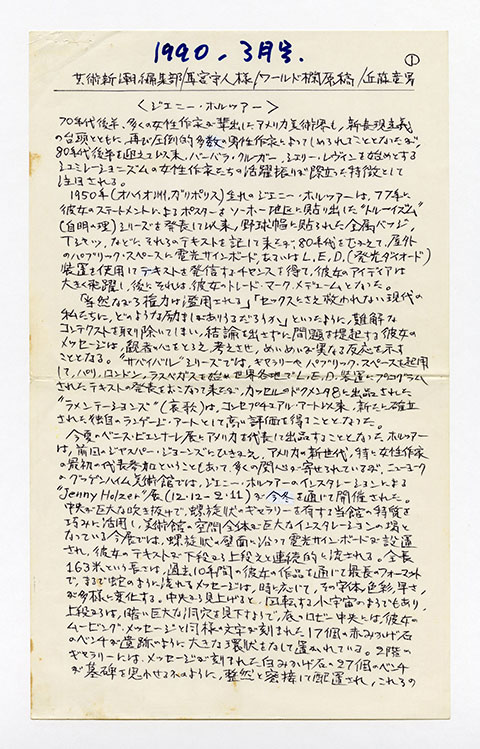 1990年3月号.
①
芸術新潮編集部/馬宮守人様/ワールド欄原稿/近藤竜男
〈ジェニー・ホルツァー〉
70年代後半、多くの女性作家が輩出したアメリカ美術界も、新表現主義
の台頭とともに、再び圧倒的多数の男性作家によってしめられることとなったが、
80年代後半を迎えて以来、バーバラ・クルガー、シェリー・レヴィンを始めとする
シュミレーショニズムの女性作家たちの活躍振りが際立った特徴として
注目される。
1950年(オハイオ州、ガリポリス)生れのジェニー・ホルツァーは、77年に
彼女のステートメントによるポスターをソーホー地区に貼り出した“トルーイズム”
(自明の理)シリーズを発表して以来、野球帽に貼られた金属バッジ、
Tシャツ、などに、それらのテキストを記して来たが、80年代をむかえて、屋外
のパブリック・スペースに電光サインボード、あるいはL.E.D.(発光ダイオード)
装置を使用してテキストを発信するチャンスを得て、彼女のアイディアは
大きく飛躍し、後にそれは、彼女のトレード・マーク・メデュームとなった。
「当然ながら権力は濫用される」「セックスにさえ救われない現代の
私たちに、どのような励ましがありうるだろうか」といったように、難解な
コンテクストを取り除いてしまい、結論を出さずに問題を提起する彼女の
メッセージは、観者の心をとらえ、考えさせ、めいめいが異なる反応を示す
こととなる。“サバイバル”シリーズでは、ギャラリーや、パブリック・スペースを起用
して、パリ、ロンドン、ラスベガスを始め世界各地でL.E.D.装置にプログラム
されたテキストの発表をおこなって来たが、カッセルのドクメンタ8に出品された
“ラメンテーションズ”(哀歌)は、コンセプチュアル・アート以来、新たに確立
された独自のランゲージ・アートとして高い評価を得ることとなった。
今夏のベニス・ビエンナーレ展にアメリカを代表して出品することとなったホルツァー
は、前回のジャスパー・ジョーンズにひきかえ、アメリカの新世代、特に女性作家
の最初の代表参加ということもあって、多くの関心が寄せられているが、ニューヨーク
のグッゲンハイム美術館では、ジェニー・ホルツァーのインスタレーションによる
“Jenny Holzer”展(12・12-2・11)が今冬を通じて開催された。
中央が巨大な吹き抜けで、螺旋状のギャラリーを有する当館の特質を
巧みに活用し、美術館の空間全体が巨大なインスタレーションの場と
なっている今展では、螺旋状の壁面に沿って電光サインボードが設置
され、彼女のテキストが下段から上段えと連続的に流される。全長
163米という長さは、過去10年間の彼女の作品を通じて最長のフォーマット
で、まるで蛇のように流れるメッセージは、時に応じて、その字体、色彩、早さ
が多様に変化する。中央から見上げると、回転する小宇宙のようでもあり、
上段からは、暗い巨大な洞穴を見下すようで、底のロビー中央には、彼女の
ムービング・メッセージと同様の文字が刻まれた17個の赤みかげ石
のベンチが遺跡のように大きな環状をなして置かれている。2階の
ギャラリーには、メッセージが刻まれた白みかげ石の27個のベンチ
が墓碑を思わせるかのように、整然と密接して配置され、これらの